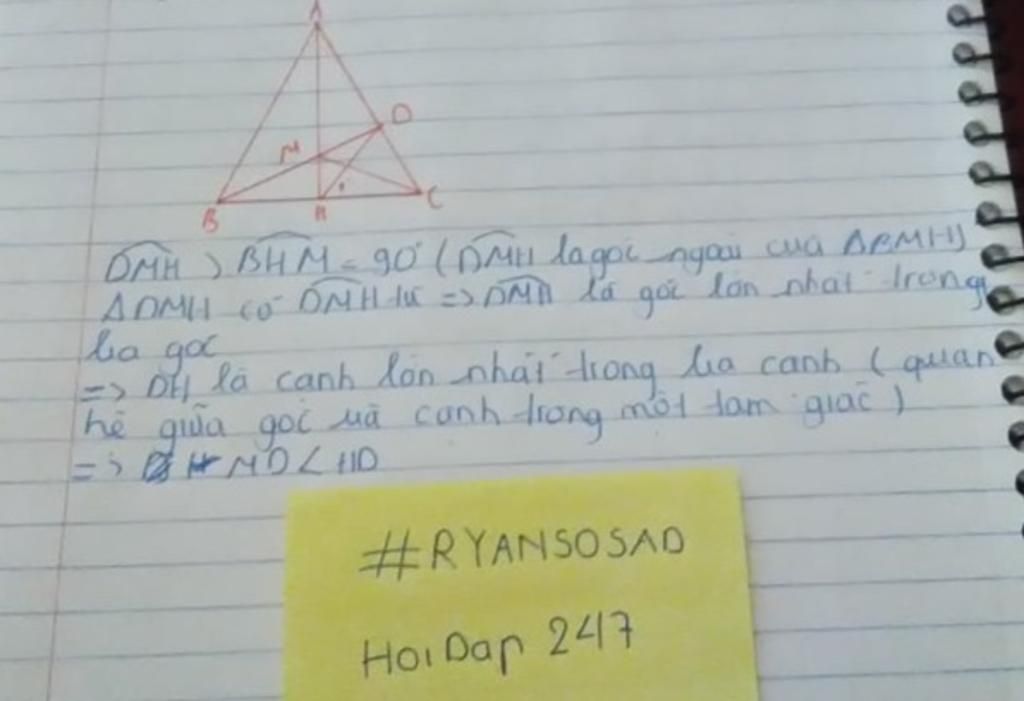 A
D
M
B
H
C
DMH > BHM = 90° (DMH là góc ngoài của ΔBMH)
ΔDMH có DMH tù => DMH là góc lớn nhất trong
ba góc
=> DH là cạnh lớn nhất trong ba cạnh (quan
hệ giữa góc và cạnh trong một tam giác)
=> MD < HD
#RYANSOSAD
HoiDap 247